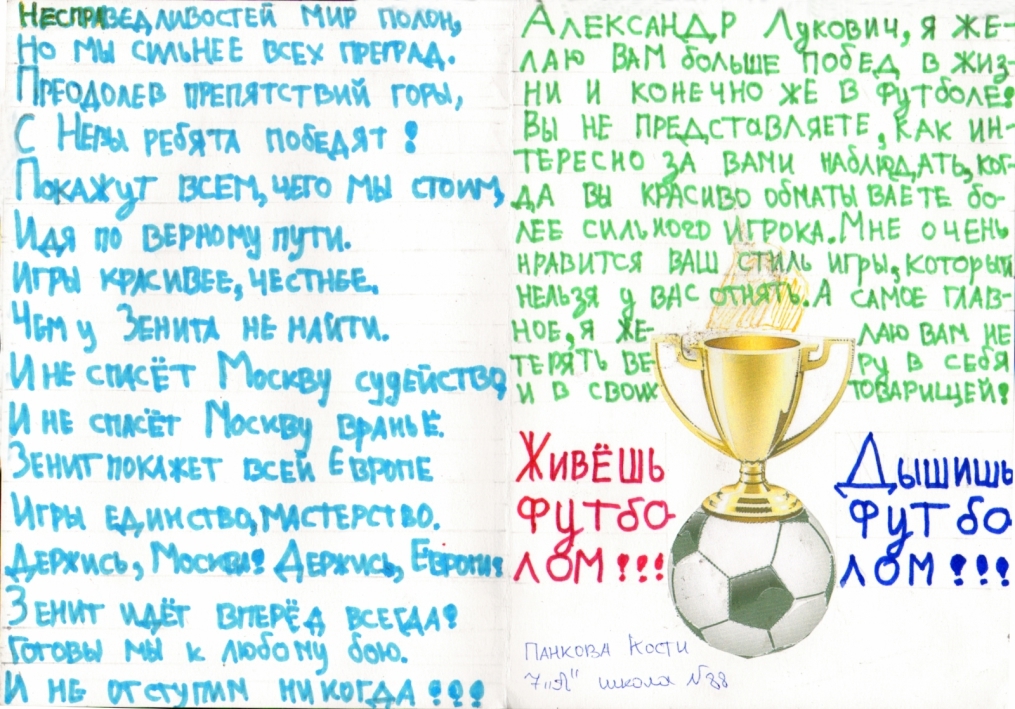 Несправедливостей мир полон,
Но мы сильнее всех преград.
Преодолев препятствий горы,
С Невы ребята победят!
Покажут всем, чего мы стоим,
Идя по верному пути.
Игры красивее, честнее.
Чем у Зенита не найти.
И не спасёт Москву судейство,
И не спасёт Москву враньё.
Зенит покажет всей Европе
Игры единство, мастерство.
Держись, Москва! Держись, Европа!
Зенит идёт вперёд всегда!
Готовы мы к любому бою.
И не отступим никогда!!!
Александр Лукович, я же-
лаю вам больше побед в жиз-
ни и конечно же в футболе!
Вы не представляете, как ин-
тересно за вами наблюдать, ког-
да вы красиво обматываете бо-
лее сильного игрока. Мне очень
нравится ваш стиль игры, который
нельзя у вас отнять. А самое глав-
ное, я же- лаю вам не
терять ве ру в себя
и в своих товарищей!
Живёшь
футбо-
лом!!!
Дышишь
футбо
лом!!!
Панкова Кости
7 „А" школа №88